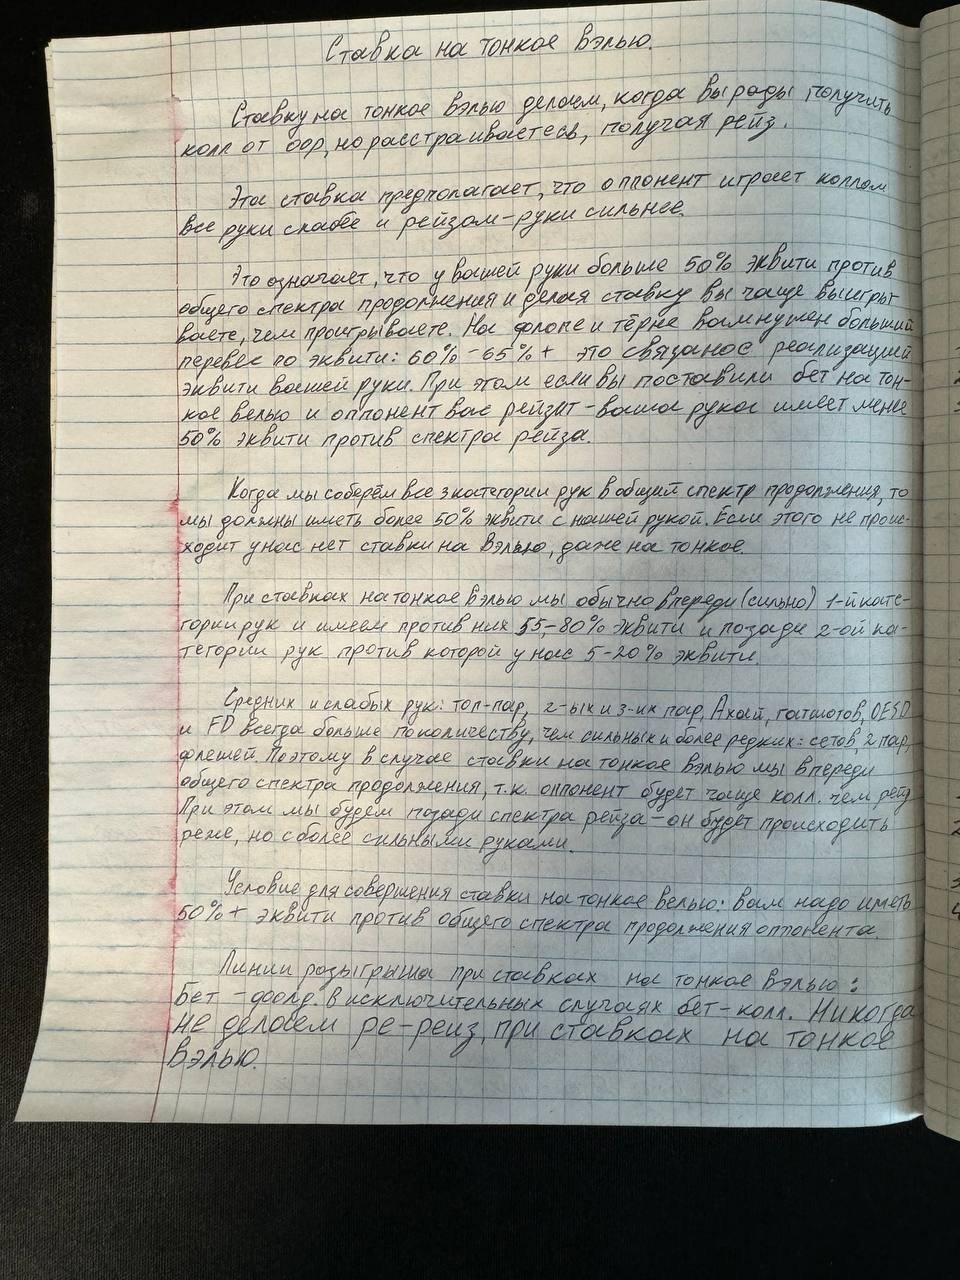 Ставка на тонкое вэлью.
Ставку на тонкое вэлью делаем, когда вы рады получить
колл от оор, но расстраиваетесь, получая рейз.
Эта ставка предполагает, что оппонент играет коллом
все руки слабее и рейзом-руки сильнее.
Это означает, что у вашей руки больше 50% эквити против
общего спектра продолжения и делая ставку вы чаще выигры
ваете, чем проигрываете. На флопе и тёрне вам нужен больший
перевес по эквити: 60% - 65% + это связано с реализацией
эквити вашей руки. При этом если вы поставили бет на тон-
кое велью и оппонент вас рейзит - ваша рука имеет менее
50% эквити против спектра рейза.
Когда мы соберём все 3 категории рук в общий спектр продолжения, то
мы должны иметь более 50% эквити с нашей рукой. Если этого не проис-
ходит у нас нет ставки на вэлью, даже на тонкое.
При ставках на тонкое вэлью мы обычно впереди (сильно) 1-й кате-
гории рук и имеем против них 55-80% эквити и позади 2-ой ка-
тегории рук против которой у нас 5-20% эквити.
Средних и слабых рук: топ-пар, 2-ых и 3-их пар, Ахай, гатшотов, OESD
и FD всегда больше по количеству, чем сильных и более редких: сетов, 2 пар,
флешей. Поэтому в случае ставки на тонкое вэлью мы впереди
общего спектра продолжения, т.к. оппонент будет чаще колл. чем рейз
При этом мы будем позади спектра рейза - он будет происходить
реже, но с более сильными руками.
Условие для совершения ставки на тонкое велью: вам надо иметь
50%+ эквити против общего спектра продолжения оппонента.
Линии розыгрыша при ставках на тонкое вэлью:
Бет - фолд. В исключительных случаях бет-колл. Никогда
не делаем ре-рейз, при ставках на тонкое
вэлью.